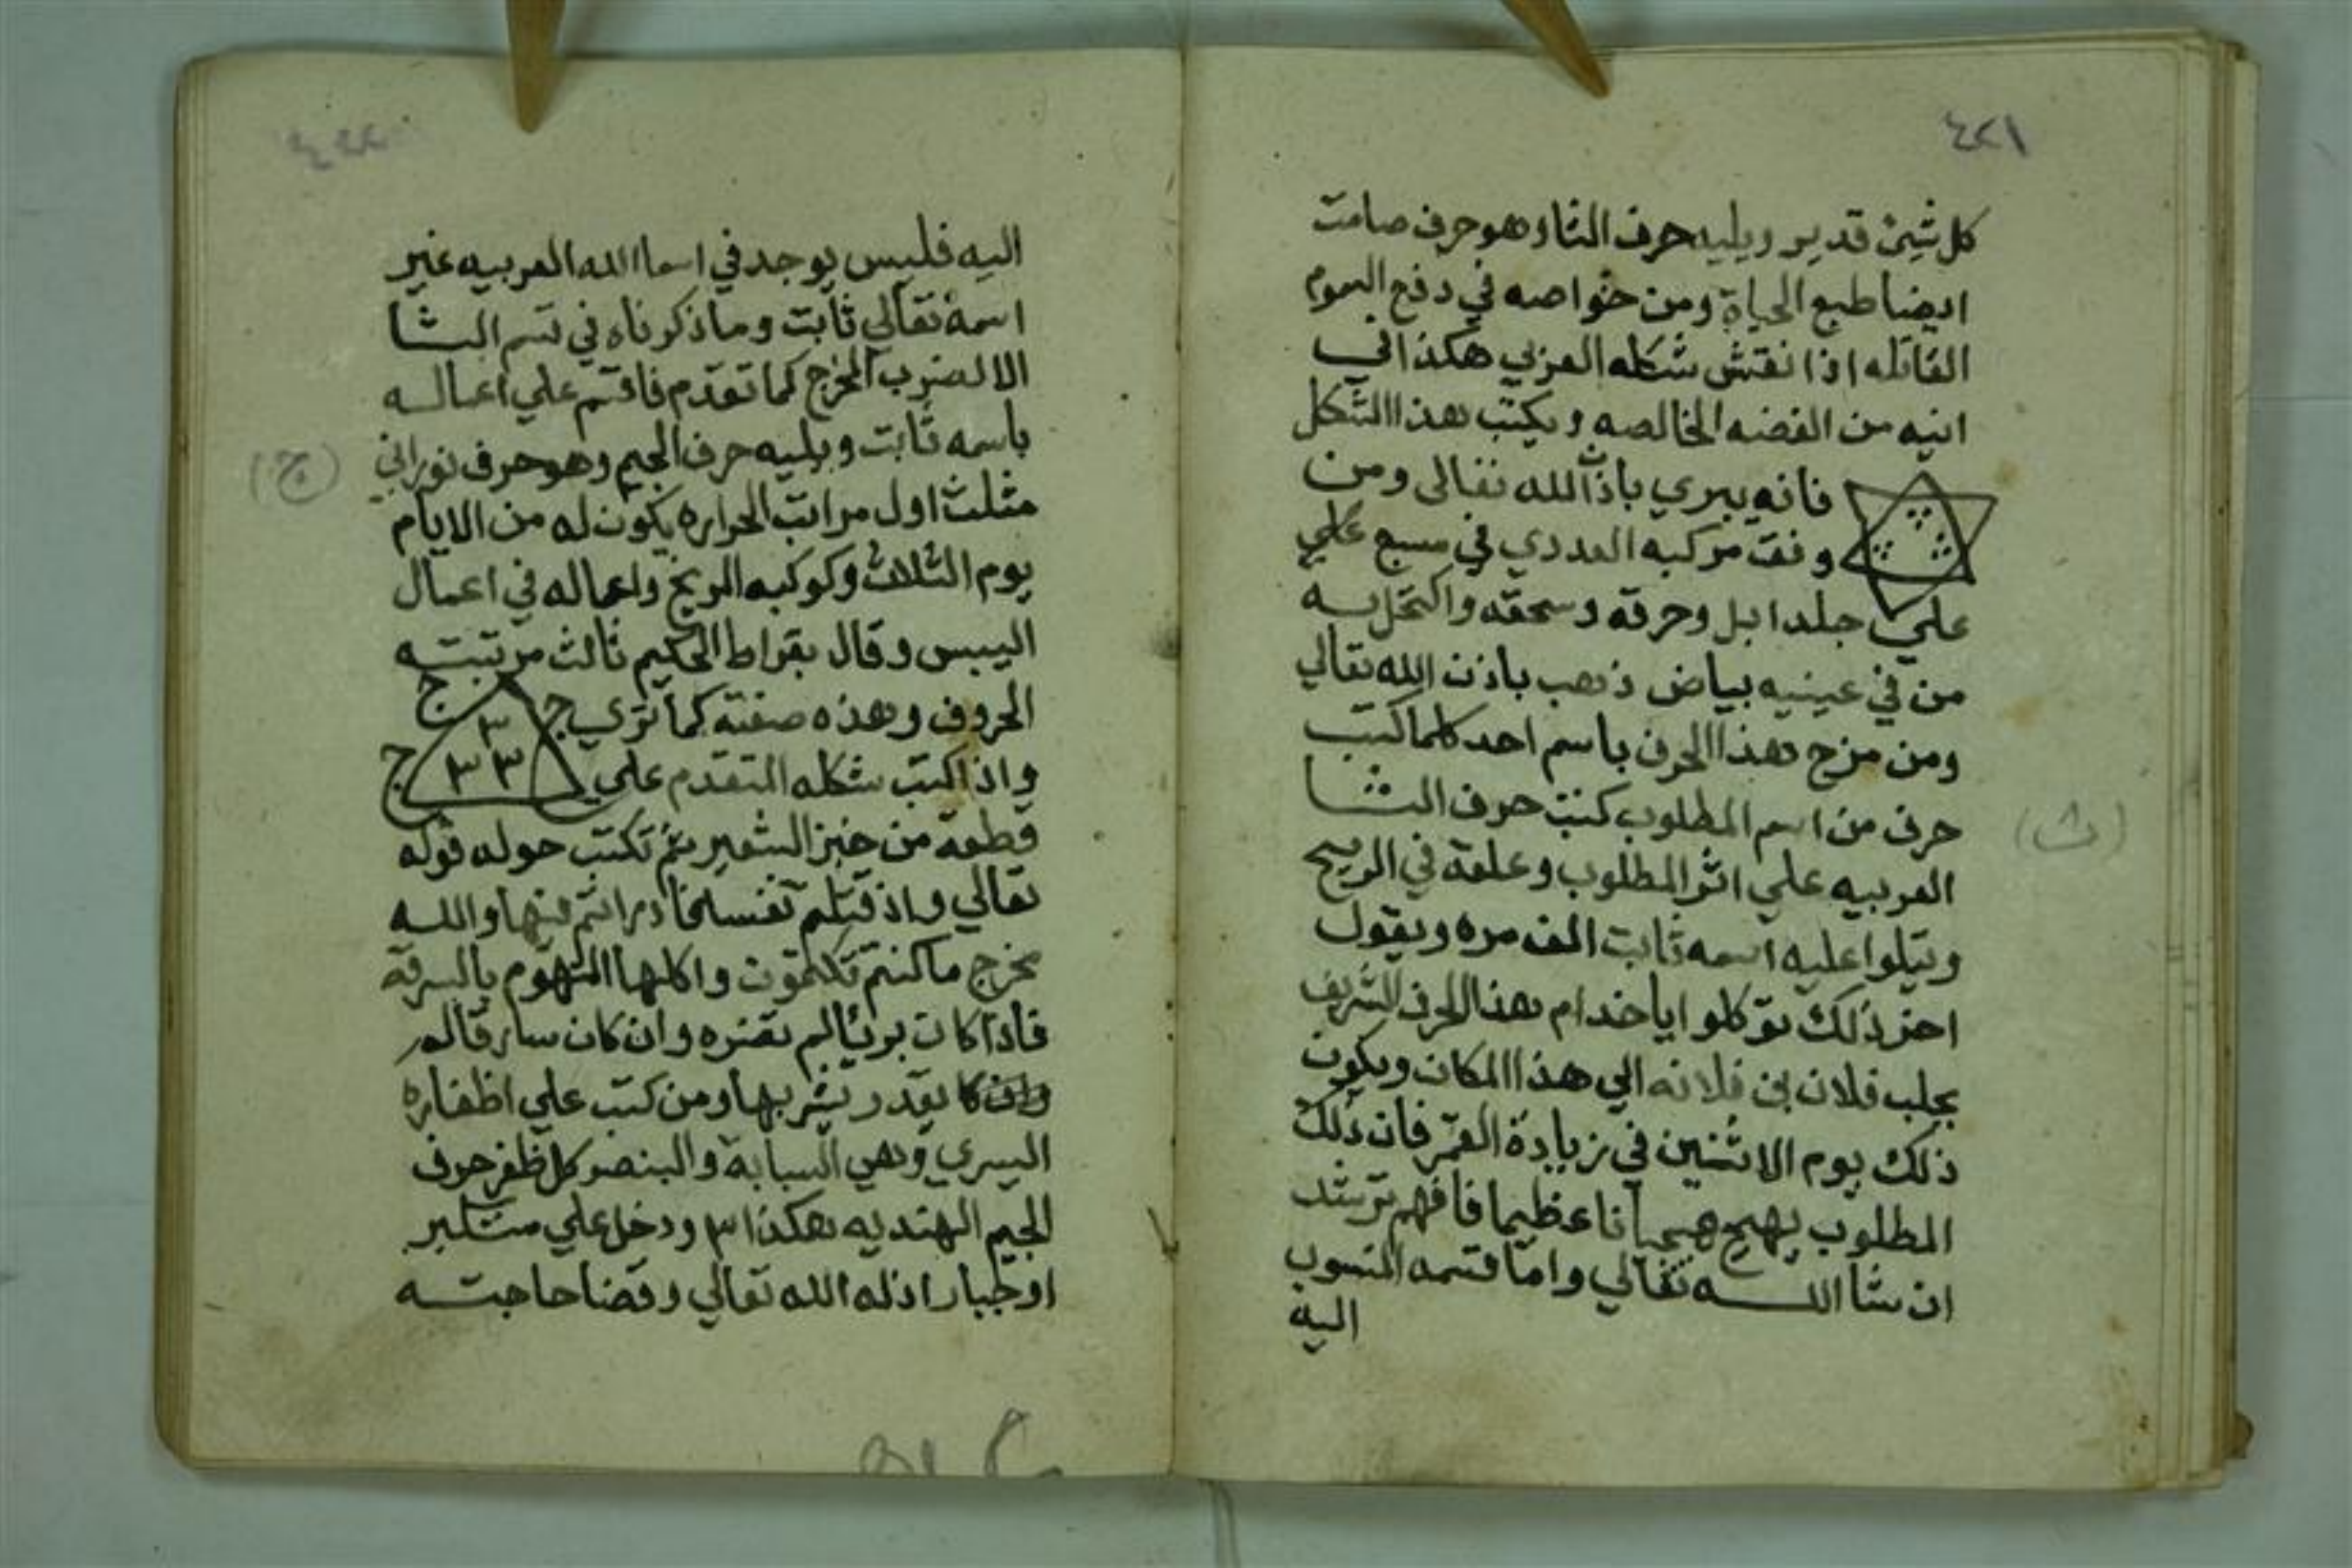 ٤٢١
كل شيئ قدير ويليه حرف الثا وهو حرف صامت
ايضا طبع الحياة ومن خواصه في دفع السموم
القاتله اذا نقش شكله العربي هكذا في
انيه من الفضه الخالصه ويكتب هذا الشكل
فانه يبري باذن الله تعالى ومن
وفق مركبه العددي في مسبع علي
علي جلد ابل وحرقه وسحقه واكتحل به
من في عينيه بياض ذهب باذن الله تعالي
ومن مزج هذا الحرف باسم احد كلما كتب
حرف من اسم المطلوب كتب حرف الثا
(ث)
العربيه علي اثر المطلوب وعلقه في الريح
ويتلوا عليه اسمه ثابت الف مره ويقول
اخر ذلك توكلوا يا خدام هذا الحرف الشريف
بجلب فلان بن فلانه الي هذا المكان ويكون
ذلك يوم الاثنين في زيادة القمر فان ذلك
المطلوب يهيج هيجانا عظيما فافهم ترشد
ان شا الله تعالي واما قسمه المنسوب
اليه
٤٢٢
اليه فليس يوجد في اسما الله العربيه غير
اسمه تعالي ثابت وما ذكرناه في قسم الثا
الا لضرب المخرج كما تقدم فاقسم علي اعماله
باسمه ثابت ويليه حرف الجيم وهو حرف نوراني
(ج)
مثلث اول مراتب الحراره يكون له من الايام
يوم الثلاث وكوكبه المريخ واعماله في اعمال
اليبس وقال بقراط الحكيم ثالث مرتبته
الحروف وهذه صفته كما تري
ج ج ج
٣ ٣ ٣
واذا كتب شكله المتقدم علي
قطعة من خبز الشعير ثم تكتب حوله قوله
تعالي واذ قتلتم نفسا فادراتم فيها والله
مخرج ما كنتم تكتمون واكلها المتهوم بالسرقة
فاذا كان بريا لم تضره وان كان سارقا لم
يقدر يشربها ومن كتب علي اظفاره
اليسري وهي السبابة والبنصر كل ظفر حرف
الجيم الهنديه هكذا ٣ ودخل علي متكبر
او جبار اذله الله تعالي وقضا حاجته